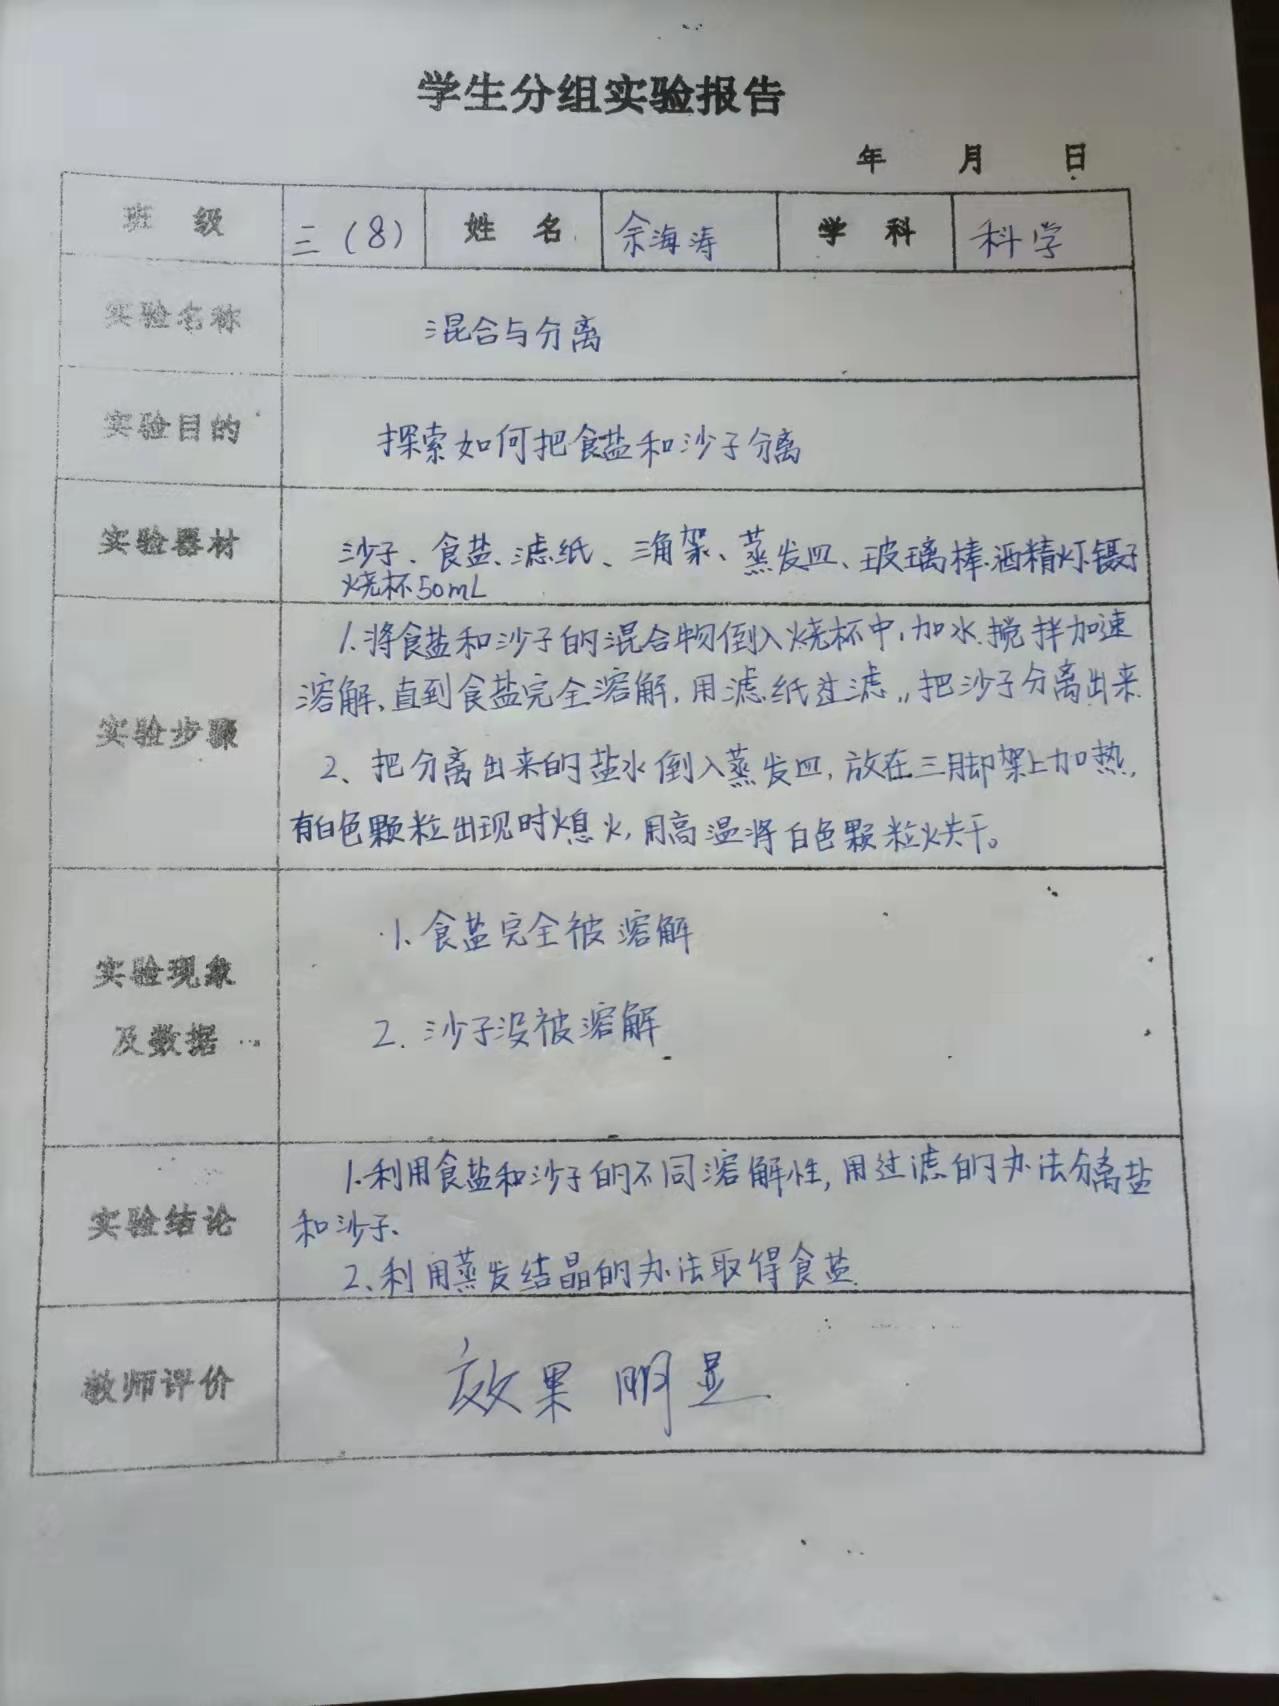 学生分组实验报告
年 月 日
班 级 三(8) 姓 名 余海涛 学 科 科学
实验名称 混合与分离
实验目的 探索如何把食盐和沙子分离
实验器材 沙子、食盐、滤纸、三角架、蒸发皿、玻璃棒.酒精灯.镊子
烧杯50mL
1.将食盐和沙子的混合物倒入烧杯中,加水.搅拌加速
溶解、直到食盐完全溶解,用滤纸过滤,,把沙子分离出来.
实验步骤
2、把分离出来的盐水倒入蒸发皿,放在三脚架上加热,
有白色颗粒出现时熄火,用高温将白色颗粒烘干。
实验现象
及数据
1.食盐完全被溶解
2.沙子没被溶解
实验结论
1.利用食盐和沙子的不同溶解性,用过滤的办法分离盐
和沙子、
2、利用蒸发结晶的办法取得食盐.
教师评价 效果明显.